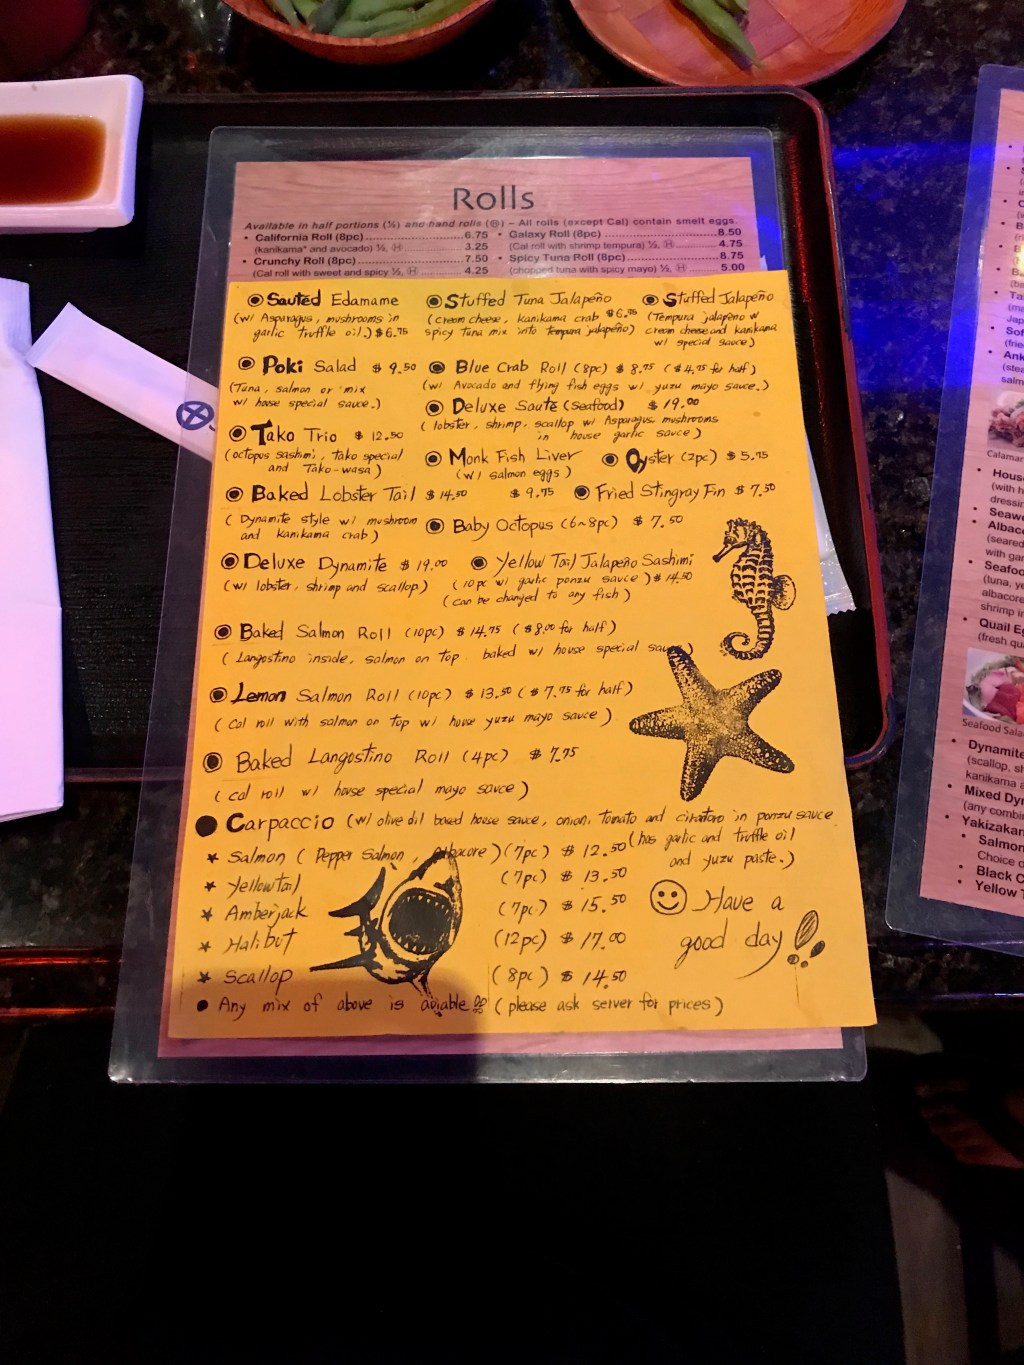 Rolls
Available in half portions (½) and hand rolls (H) – All rolls (except Cal) contain smelt eggs.
• California Roll (8pc) 6.75
(kanikama* and avocado) ½, H 3.25
• Crunchy Roll (8pc) 7.50
(Cal roll with sweet and spicy ½, H 4.25
• Galaxy Roll (8pc) 8.50
(Cal roll with shrimp tempura) ½, H 4.75
• Spicy Tuna Roll (8pc) 8.75
(chopped tuna with spicy mayo) ½, H 5.00
Sauted Edamame
(w/ Asparagus, mushrooms in
garlic truffle oil.) $6.75
Stuffed Tuna Jalapeño
(cream cheese, kanikama crab $6.75
spicy tuna mix into tempura jalapeño)
Stuffed Jalapeño
(Tempura jalapeño w
cream cheese and kanikama
w/ special sauce)
Poki Salad $9.50
(Tuna, salmon or mix
w/ house special sauce.)
Blue Crab Roll (8pc) $8.75 ($4.75 for half)
(w/ Avocado and flying fish eggs w/ yuzu mayo sauce.)
Deluxe Saute (Seafood) $19.00
(lobster, shrimp, scallop w/ Asparagus, mushrooms
in house garlic sauce)
Tako Trio $12.50
(octopus sashimi, tako special
and Tako-wasa)
Monk Fish Liver
(w/ salmon eggs)
$9.75
Oyster (2pc) $5.75
Baked Lobster Tail $14.50
(Dynamite style w/ mushroom
and kanikama crab)
Fried Stingray Fin $7.50
Baby Octopus (6~8pc) $7.50
Deluxe Dynamite $19.00
(w/ lobster, shrimp and scallop)
Yellow Tail Jalapeño Sashimi
(10pc w/ garlic ponzu sauce) $14.50
(can be changed to any fish)
Baked Salmon Roll (10pc) $14.75 ($8.00 for half)
(Langostino inside, salmon on top. baked w/ house special sauce)
Lemon Salmon Roll (10pc) $13.50 ($7.75 for half)
(Cal roll with salmon on top w/ house yuzu mayo sauce)
Baked Langostino Roll (4pc) $7.75
(cal roll w/ house special mayo sauce)
Carpaccio (w/ olive oil based house sauce, onion, tomato and cirantoro in ponzu sauce
(has garlic and truffle oil
and yuzu paste.)
★ Salmon (Pepper Salmon, Albacore) (7pc) $12.50
★ Yellowtail (7pc) $13.50
★ Amberjack (7pc) $15.50
★ Halibut (12pc) $17.00
★ Scallop (8pc) $14.50
• Any mix of above is aviable (please ask server for prices)
Have a
good day
Calamar
• House
(with h
dressin
• Seaw
• Albac
(seared
with gar
• Seafoo
(tuna, ye
albacore
shrimp in
• Quail Eg
(fresh qua
Seafood Sala
• Dynamite
(scallop, sh
kanikama a
• Mixed Dyn
(any combin
• Yakizakan
• Salmon
Choice o
• Black C
• Yellow T